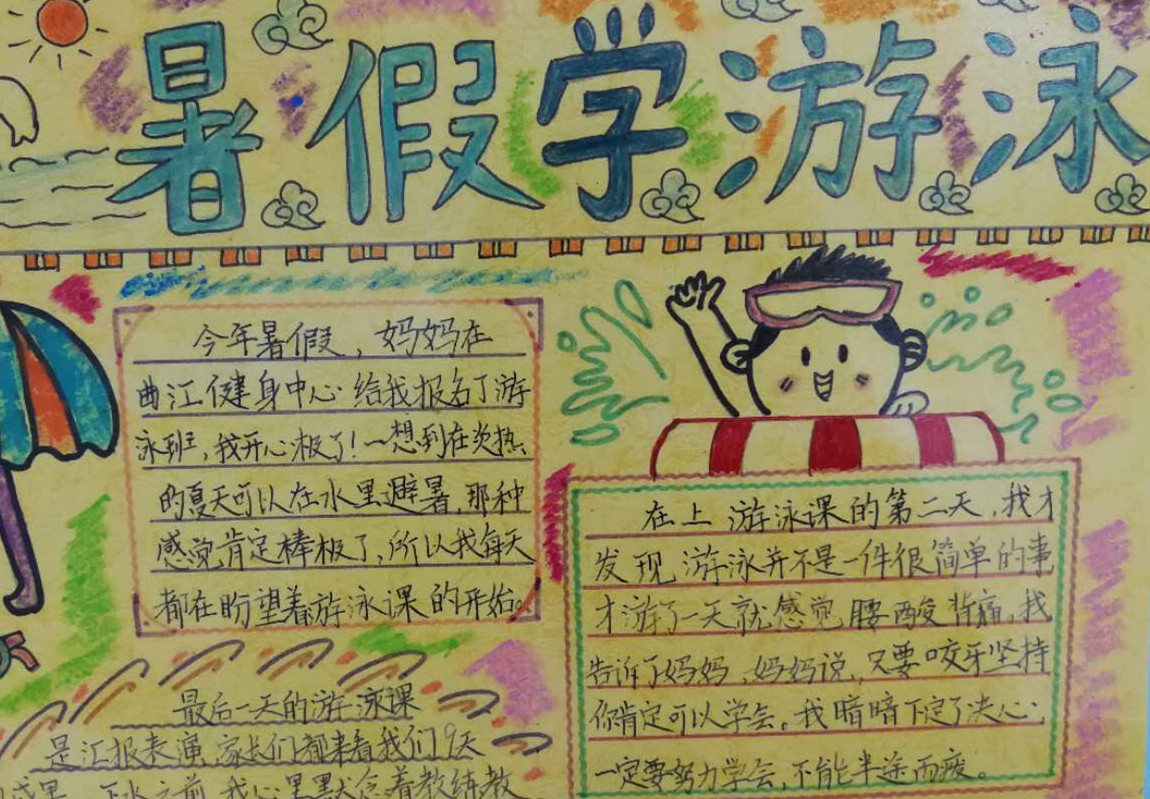 暑假学游泳
今年暑假，妈妈在
曲江健身中心给我报名了游
泳班，我开心极了！一想到在炎热
的夏天可以在水里避暑，那种
感觉肯定棒极了，所以我每天
都在盼望着游泳课的开始。
在上游泳课的第二天，我才
发现游泳并不是一件很简单的事
才游了一天就感觉腰酸背痛，我
告诉了妈妈，妈妈说，只要咬牙坚持
你肯定可以学会。我暗暗下定了决心：
一定要努力学会，不能半途而废。
最后一天的游泳课
是汇报表演，家长们都来看我们9天
下水之前，我心里默念着教练教